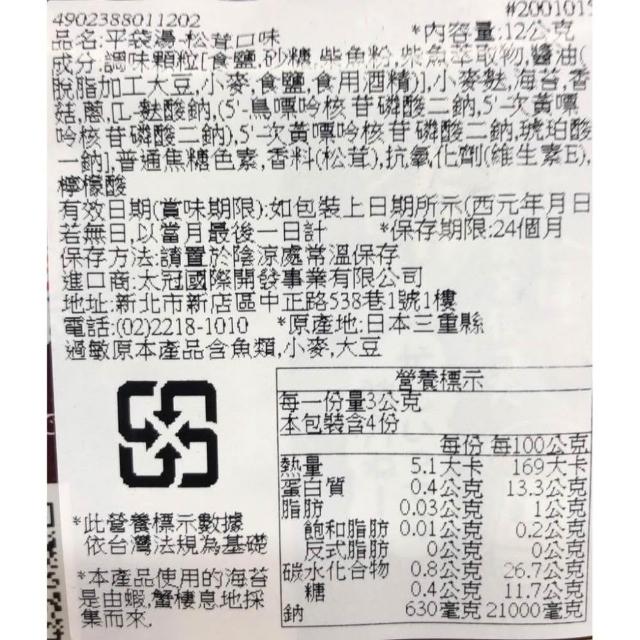 4902388011202
#2001015
品名:平袋湯-松茸口味 *內容量:12公克
成分:調味顆粒[食鹽,砂糖,柴魚粉,柴魚萃取物,醬油(
脫脂加工大豆,小麥,食鹽,食用酒精)],小麥麩,海苔,香
菇,蔥,[L-麩酸鈉,(5'-鳥嘌呤核苷磷酸二鈉,5'-次黃嘌
呤核苷磷酸二鈉),5'-次黃嘌呤核苷磷酸二鈉,琥珀酸
一鈉],普通焦糖色素,香料(松茸),抗氧化劑(維生素E),
檸檬酸
有效日期(賞味期限):如包裝上日期所示(西元年月日
若無日,以當月最後一日計 *保存期限:24個月
保存方法:請置於陰涼處常溫保存
進口商:太冠國際開發事業有限公司
地址:新北市新店區中正路538巷1號1樓
電話:(02)2218-1010 *原產地:日本三重縣
過敏原本產品含魚類,小麥,大豆
營養標示
每一份量3公克
本包裝含4份
每份 每100公克
熱量 5.1大卡 169大卡
蛋白質 0.4公克 13.3公克
脂肪 0.03公克 1公克
飽和脂肪 0.01公克 0.2公克
反式脂肪 0公克 0公克
碳水化合物 0.8公克 26.7公克
糖 0.4公克 11.7公克
鈉 630毫克 21000毫克
*此營養標示數據
依台灣法規為基礎
*本產品使用的海苔
是由蝦,蟹棲息地採
集而來.